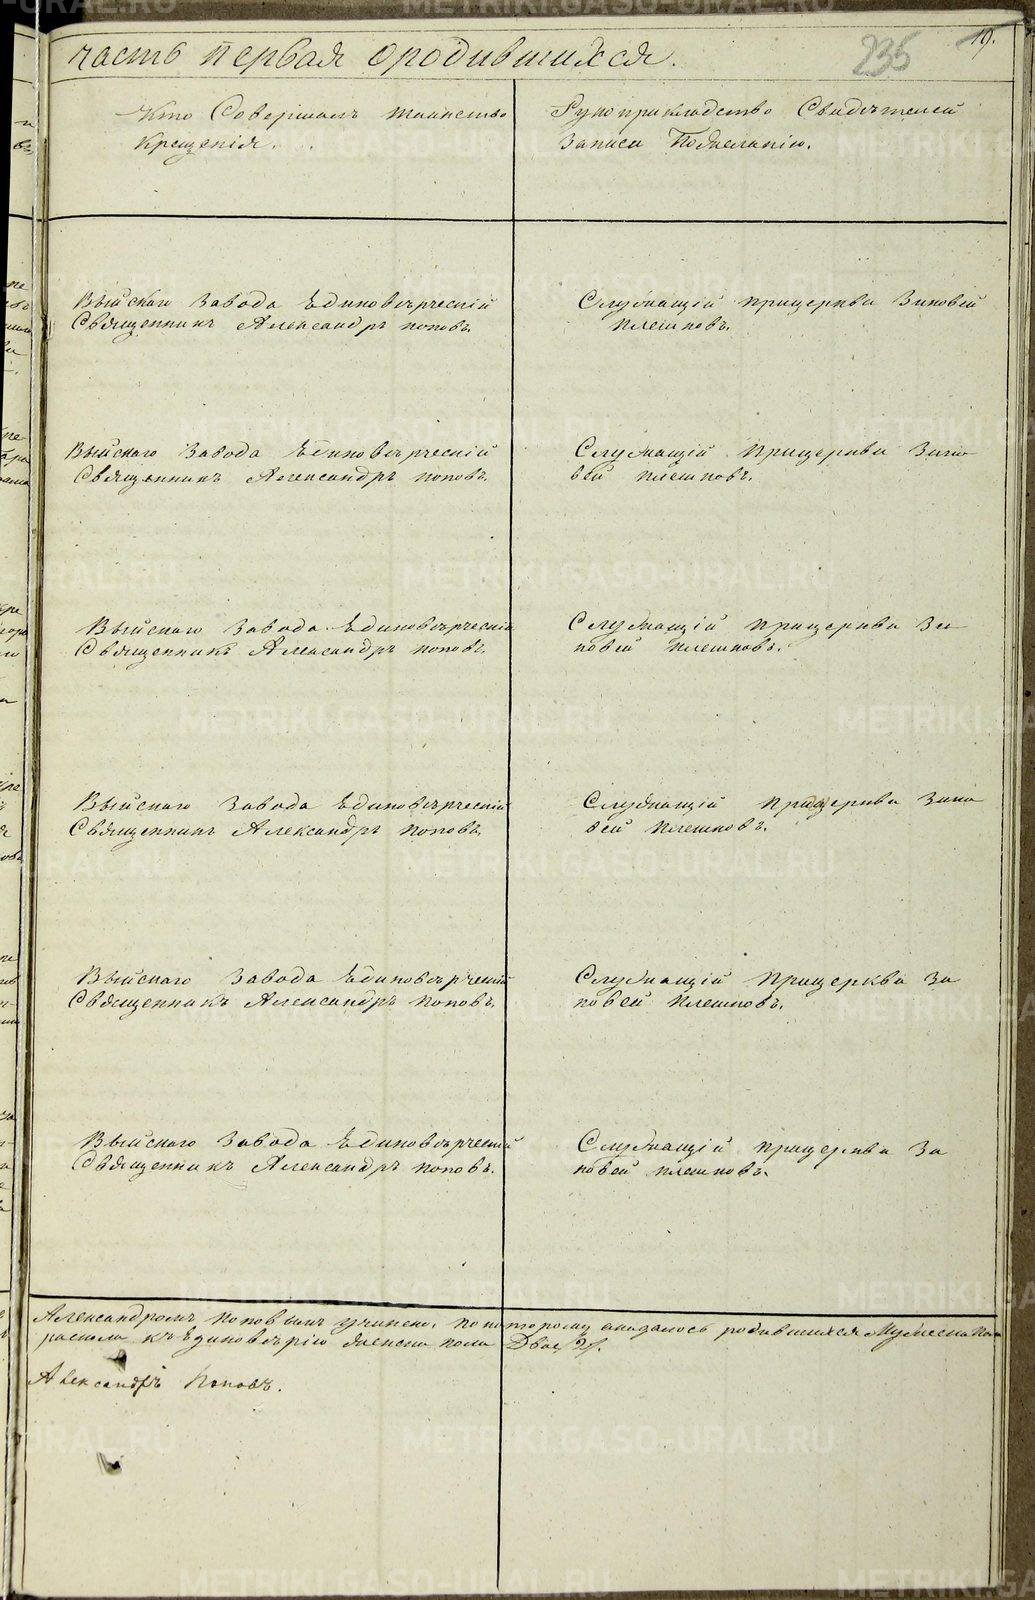 часть первая ородившихся.
235
19.
Кто Совершалъ таинство
Крещенія.
Рукоприкладство Свидѣтелей
Записи Пожеланію.
Выйскаго Завода Единовѣрческій
Священникъ Александръ поповъ.
Служащій прицеркви Зиновей
плешковъ.
Выйскаго Завода Единовѣрческій
Священникъ Александръ поповъ.
Служащій прицеркви Зино
вей плешковъ.
Выйскаго Завода Единовѣрческій
Священникъ Александръ поповъ.
Служащій прицеркви Зи
новей плешковъ.
Выйскаго Завода Единовѣрческій
Священникъ Александръ поповъ.
Служащій прицеркви Зино
вей плешковъ.
Выйскаго Завода Единовѣрческій
Священникъ Александръ поповъ.
Служащій прицеркви Зи
новей плешковъ.
Выйскаго Завода Единовѣрческій
Священникъ Александръ поповъ.
Служащій прицеркви Зи
новей плешковъ.
Александромъ поповымъ учинено, по которому оказалось родившихся Мужеска пола
раскола къ Единовѣрію женска пола Двое
Александръ Поповъ.
METRIKI.GASO-URAL.RU